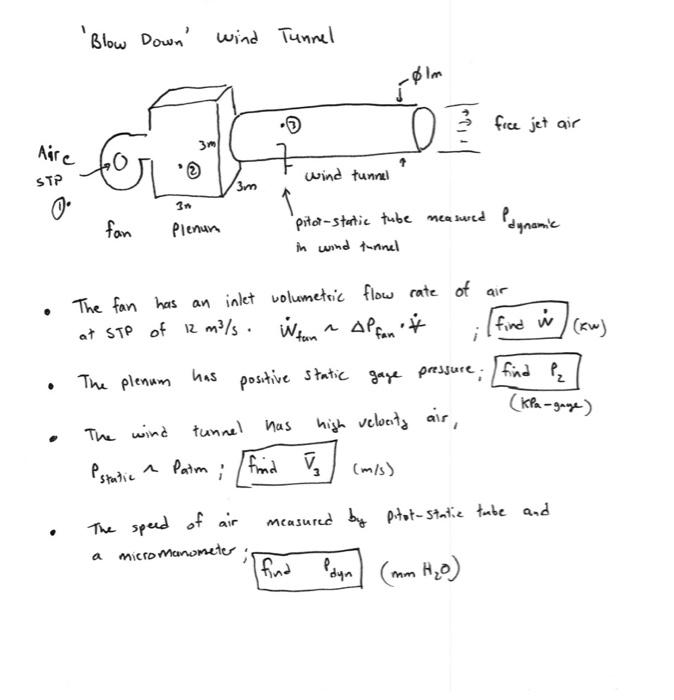 'Blow Down' Wind Tunnel
φ1m
③
free jet air
3m
Air @
STP
①
②
wind tunnel
3m
3m
fan
Plenum
pitot-static tube measured Pdynamic
in wind tunnel
• The fan has an inlet volumetric flow rate of air
at STP of 12 m³/s. Ẇfan ~ ΔPfan · V̶̇ ; find Ẇ (KW)
• The plenum has positive static gage pressure; find P₂
(KPa-gage)
• The wind tunnel has high velocity air,
Pstatic ~ Patm ; find V̄₃ (m/s)
• The speed of air measured by pitot-static tube and
a micromanometer; find Pdyn (mm H₂O)